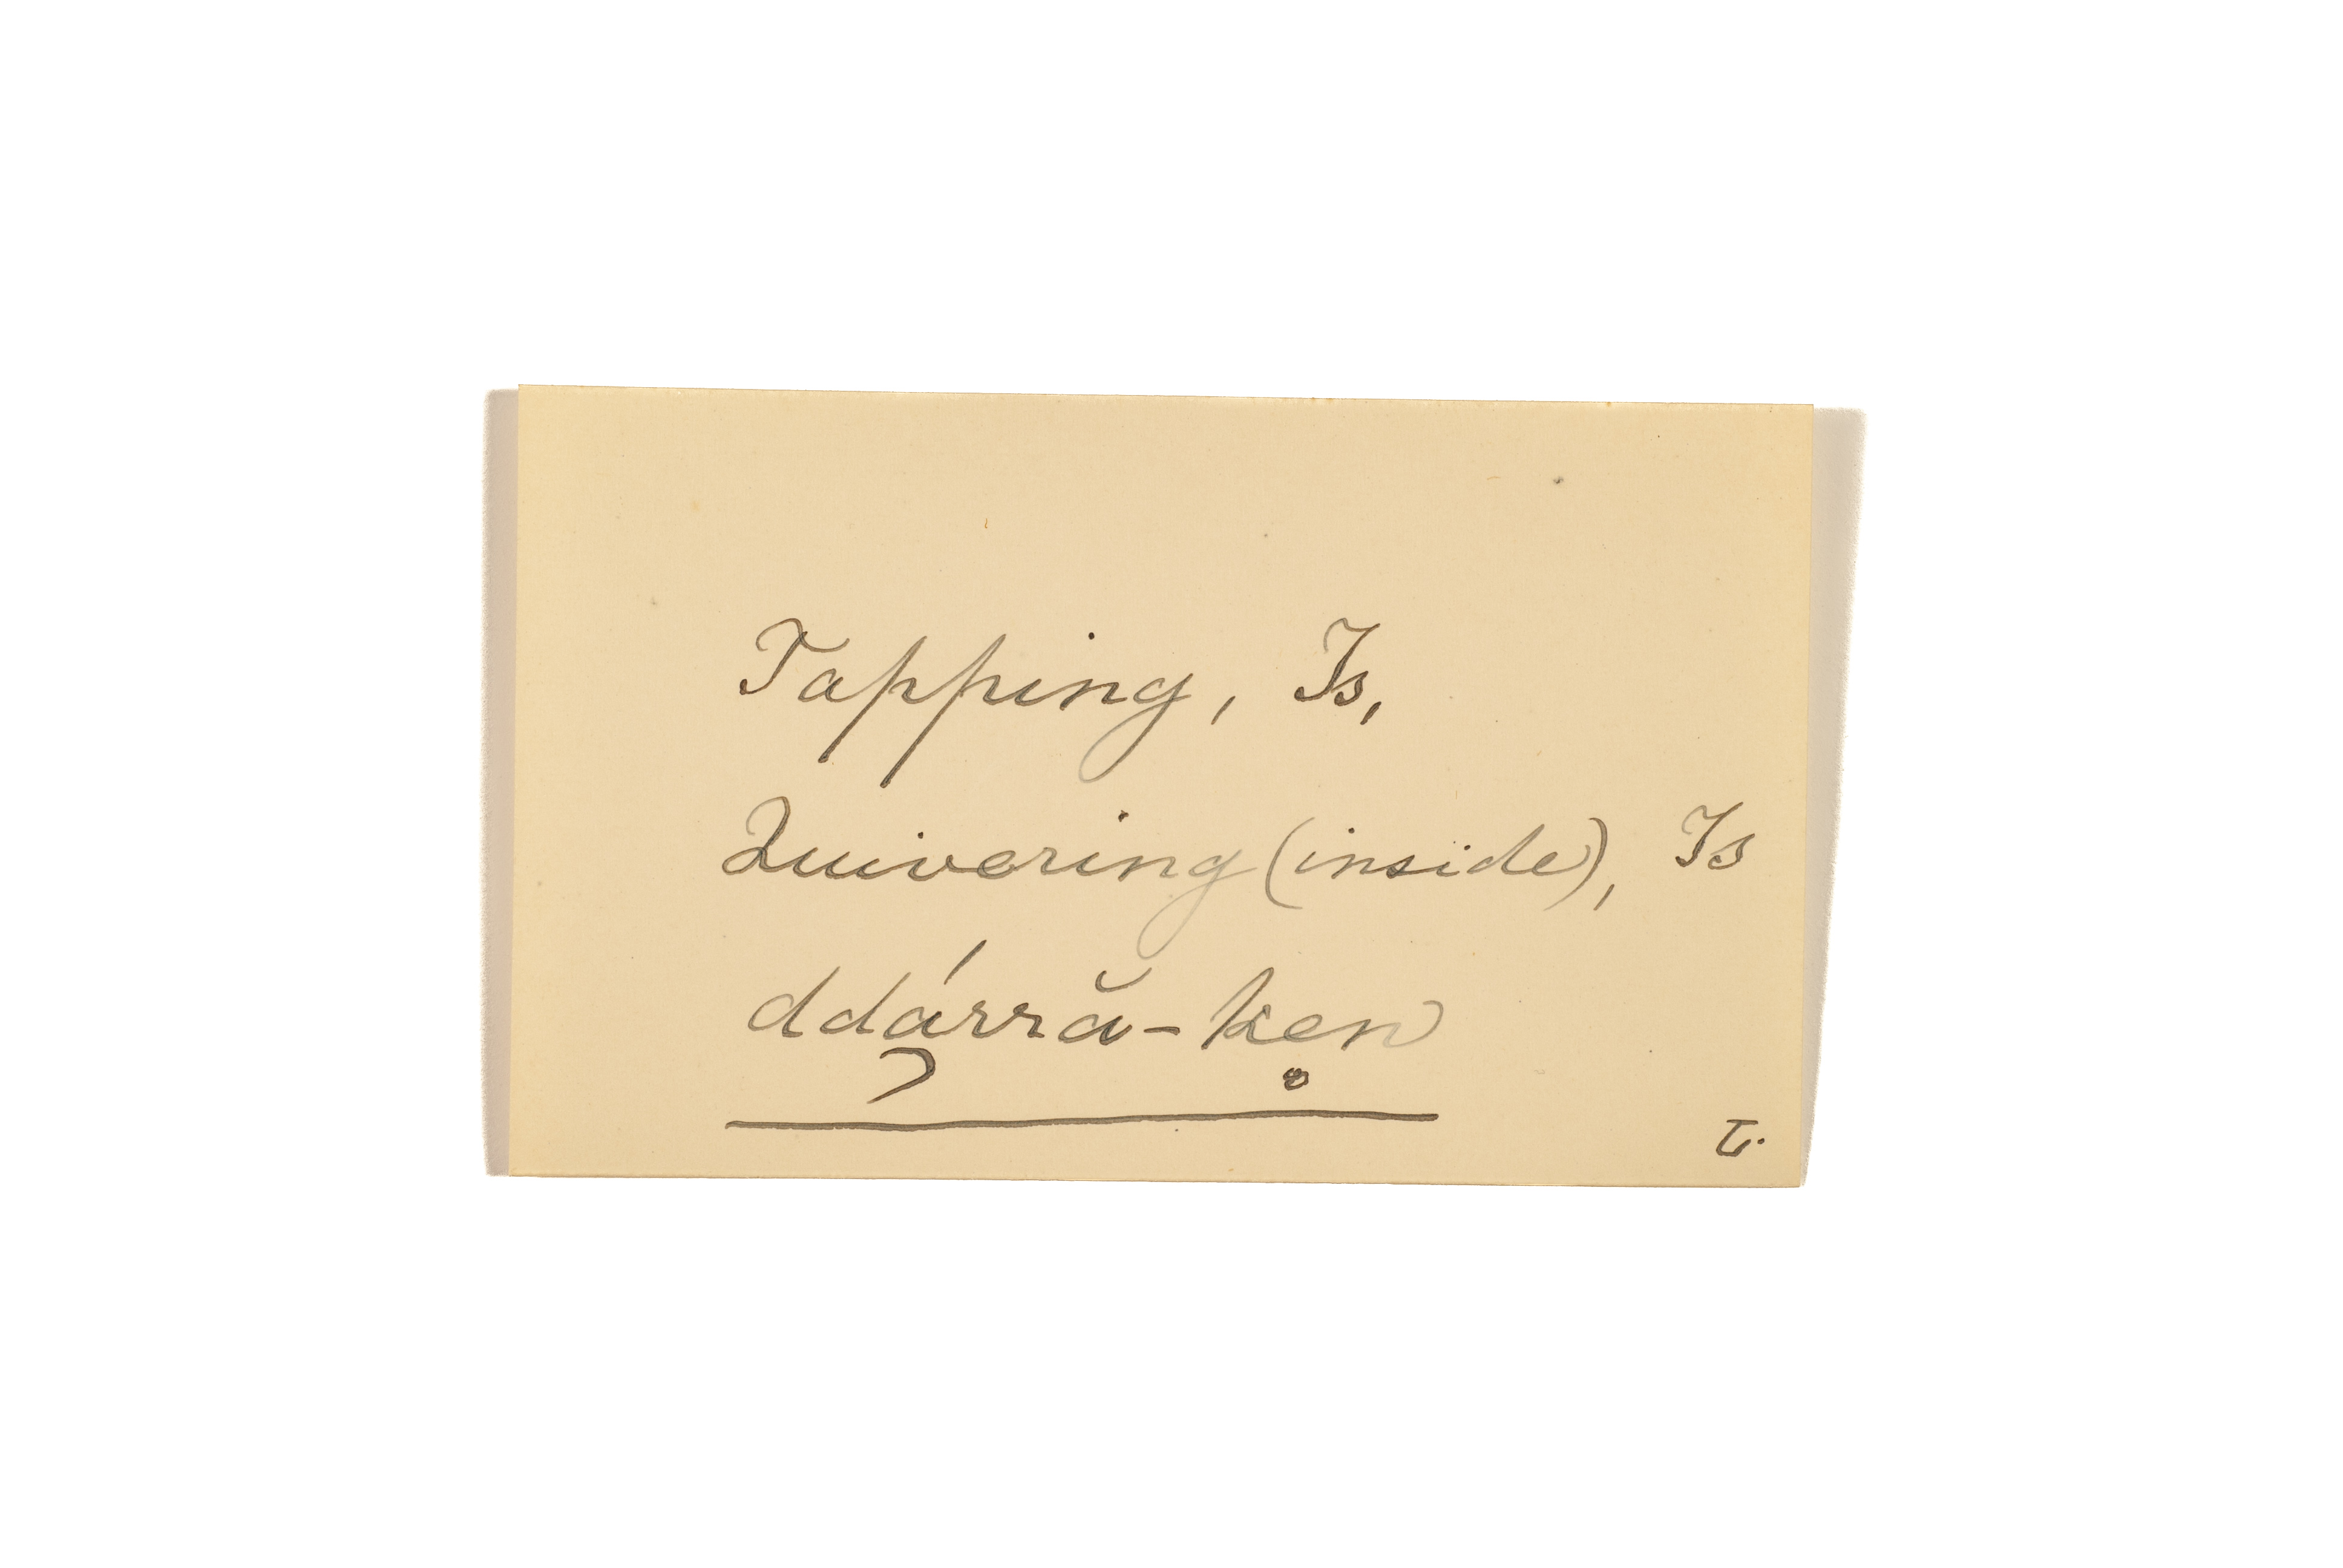 Tapping, Is,
Quivering (inside), Is
ddá̦rră-ke̥n
T.